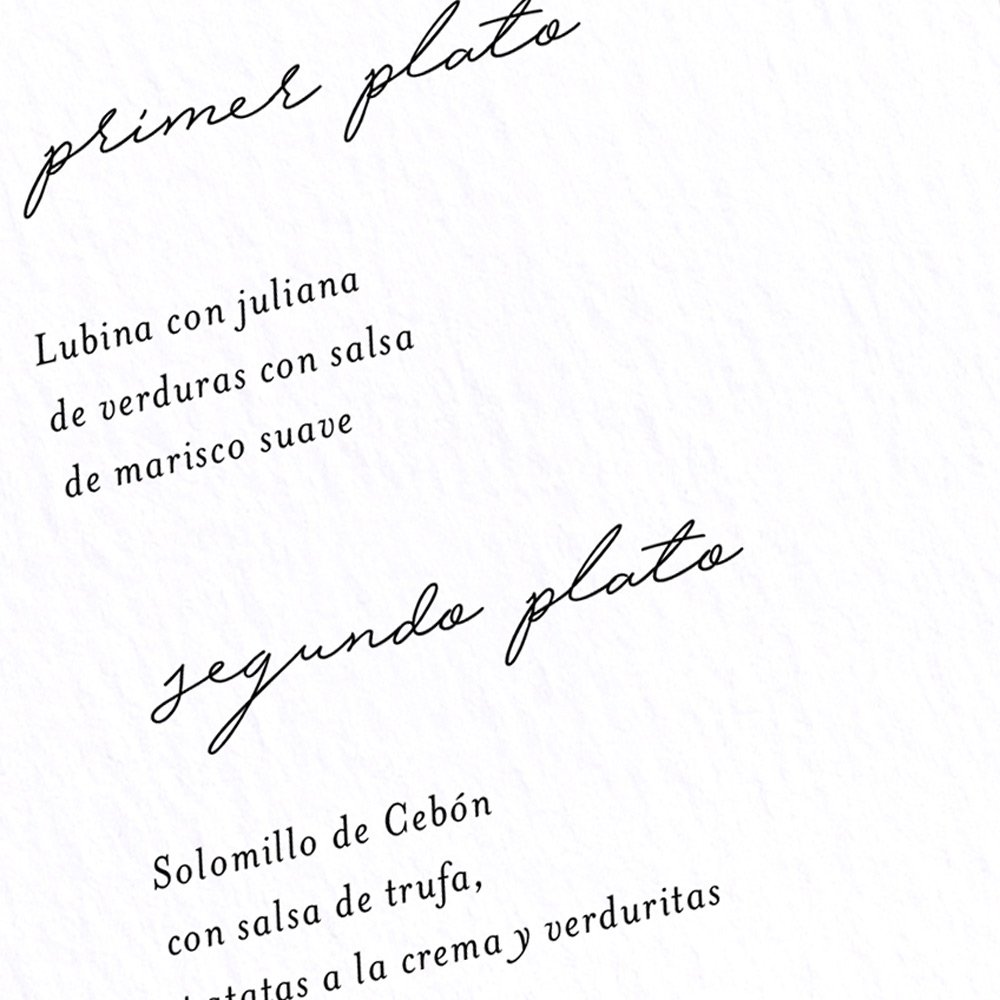 primer plato
Lubina con juliana
de verduras con salsa
de marisco suave
segundo plato
Solomillo de Cebón
con salsa de trufa,
patatas a la crema y verduritas